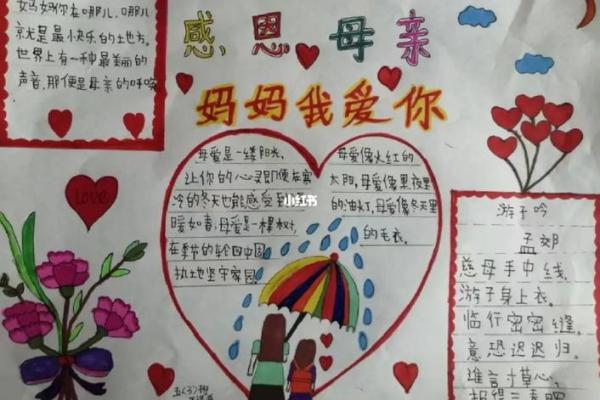 妈妈你在哪儿,哪儿
就是最小快乐的地方。
世界上有一种最美丽的
声音,那便是母亲的呼唤
感恩母亲
妈妈我爱你
母爱是一缕阳光,
让你的心灵即便在寒
冷的冬天也能感受到
暖如春;母爱是一棵树,
在季节的轮回中固
执地坚守家园。
母爱像火红的
太阳,母爱像黑夜里
的油灯,母爱像冬天里
的毛衣。
小红书
love
游子吟
孟郊
慈母手中线,
游子身上衣。
临行密密缝,
意恐迟迟归。
谁言寸草心,
报得三春晖
五(3)班